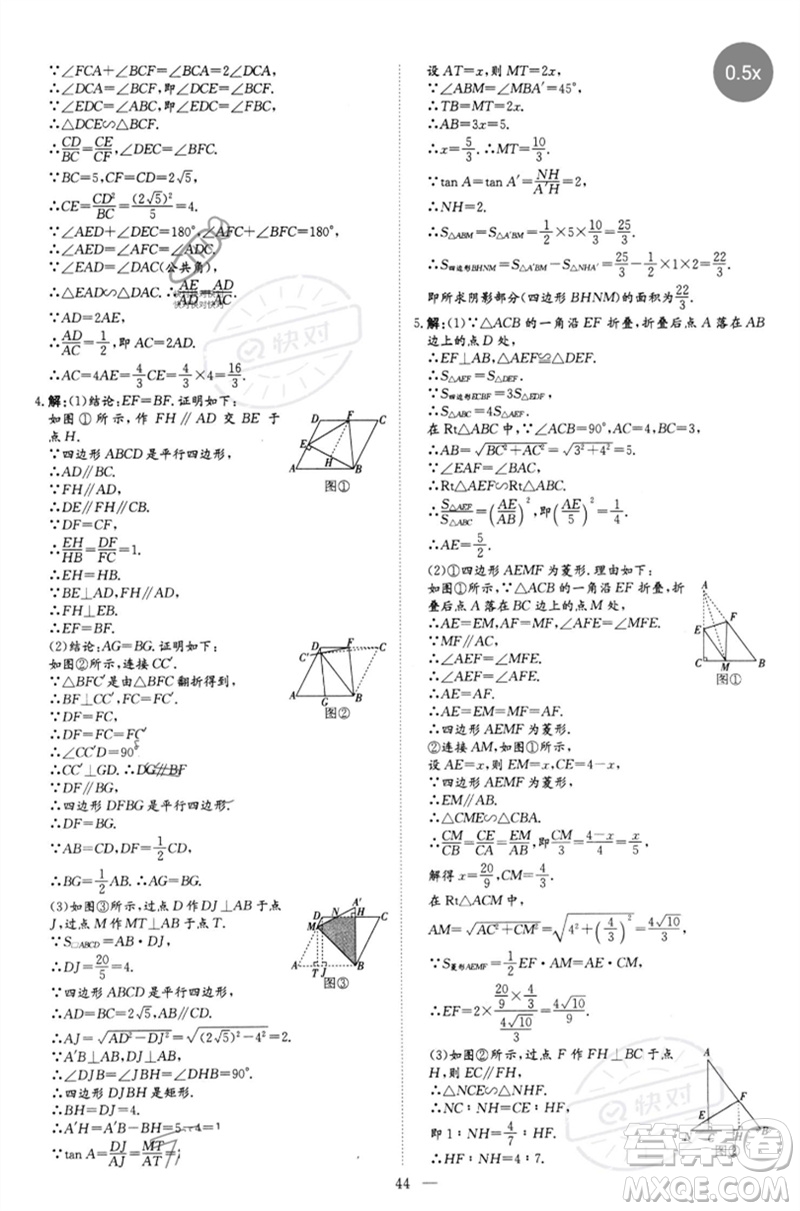 ∵∠FCA+∠BCF=∠DCA+∠DCE,
∴∠DCA=∠BCF,即∠DCE=∠BCF.
∵∠EDC=∠ABC,即∠EDC=∠FBC.
∴△DCE∽△BCF.
∴CD/BC=CE/CF,∠DEC=∠BFC.
∵BC=5,CF=CD=2√5,
∴CE=CD²/BC=(2√5)²/5=4.
∵∠AED+∠DEC=180°,∠AFC+∠BFC=180°,
∴∠AED=∠AFC=∠ADC.
∵∠EAD=∠DAC(公共角),
∴△EAD∽△DAC.∴AE/AD=AD/AC.
∵DA=2AE,
∴AD/AC=1/2,即AC=2AD.
∴AC=4AE=4/3 CE=4/3×4=16/3.
4.解:(1)结论:EF=BF.证明如下:
如图①所示,作FH∥AD交BE于
点H.
∵四边形ABCD是平行四边形,
∴AD∥BC.
∵FH∥AD,
∴FH∥BC.
∵DF=CF,
∴EH/HB=DF/FC=1.
∴EH=HB.
∵BE⊥AD,FH∥AD,
∴FH⊥EB.
∴EF=BF.
D F C
E
H
A B
图①
(2)结论:AG=BG.证明如下:
如图②所示,连接CC′.
∵△BFC′是由△BFC翻折得到,
∴BF⊥CC′,FC=FC′.
∵DF=FC,
∴DF=FC=FC′.
∴∠CC′D=90°
∴CC′⊥GD.∴DG∥BF
∵DF∥BG,
∴四边形DFBG是平行四边形.
∴DF=BG.
∵AB=CD,DF=1/2 CD.
∴BG=1/2 AB.∴AG=BG.
D F C
C′
A G B
图②
(3)如图③所示,过点D作DJ⊥AB于点
J,过点M作MT⊥AB于点T.
∵S▱ABCD=AB·DJ,
∴DJ=20/5=4.
∵四边形ABCD是平行四边形,
∴AD=BC=2√5,AB∥CD.
∴AJ=√(AD²−DJ²)=√((2√5)²−4²)=2.
∵A′B⊥AB,DJ⊥AB,
∴∠DJB=∠JBH=∠DHB=90°.
∴四边形DJBH是矩形.
∴BH=DJ=4.
∴A′H=A′B−BH=5−4=1
∵tan A=DJ/AJ=MT/AT=
A′
D N H C
M
A T J B
图③
设AT=x,则MT=2x,
∵∠ABM=∠MBA′=45°,
∴TB=MT=2x.
∴AB=3x=5.
∴x=5/3.∴MT=10/3.
∵tan A=tan A′=NH/A′H=2,
∴NH=2.
∴S△ABM=S△A′BM=1/2×5×10/3=25/3.
∴S四边形BHNM=S△A′BM−S△NHA′=25/3−1/2×1×2=22/3.
即所求阴影部分(四边形BHNM)的面积为22/3.
5.解:(1)∵△ACB的一角沿EF折叠,折叠后点A落在AB
边上的点D处,
∴EF⊥AB,△AEF≌△DEF.
∴S△AEF=S△DEF.
∵S四边形ECBF=3S△EDF,
∴S△ABC=4S△AEF.
在Rt△ABC中,∵∠ACB=90°,AC=4,BC=3,
∴AB=√(BC²+AC²)=√(3²+4²)=5.
∵∠EAF=∠BAC,
∴Rt△AEF∽Rt△ABC.
∴S△AEF/S△ABC=(AE/AB)²,即(AE/5)²=1/4.
∴AE=5/2.
(2)①四边形AEMF为菱形.理由如下:
如图①所示,∵△ACB的一角沿EF折叠,折
叠后点A落在BC边上的点M处,
∴AE=EM,AF=MF,∠AFE=∠MFE.
∵MF∥AC,
∴∠AEF=∠MFE.
∴∠AEF=∠AFE.
∴AE=AF.
∴AE=EM=MF=AF.
∴四边形AEMF为菱形.
②连接AM,如图①所示,
设AE=x,则EM=x,CE=4−x,
∵四边形AEMF为菱形,
∴EM∥AB.
∴△CME∽△CBA.
∴CM/CB=CE/CA=EM/AB,即CM/3=(4−x)/4=x/5.
解得x=20/9,CM=4/3.
在Rt△ACM中,
AM=√(AC²+CM²)=√(4²+(4/3)²)=4√10/3.
∵S菱形AEMF=1/2 EF·AM=AE·CM,
∴EF=2×(4/3×20/9)/(4√10/3)=4√10/9.
A
F
E
C M B
图①
(3)如图②所示,过点F作FH⊥BC于点
H,∴△NCE∽△NHF.
∴NC∶NH=CE∶HF.
即1∶NH=4/7∶HF.
∴HF∶NH=4∶7.
A
F
E
C H B
图②
44
0.5x
快对
答案圈
MXQE.COM